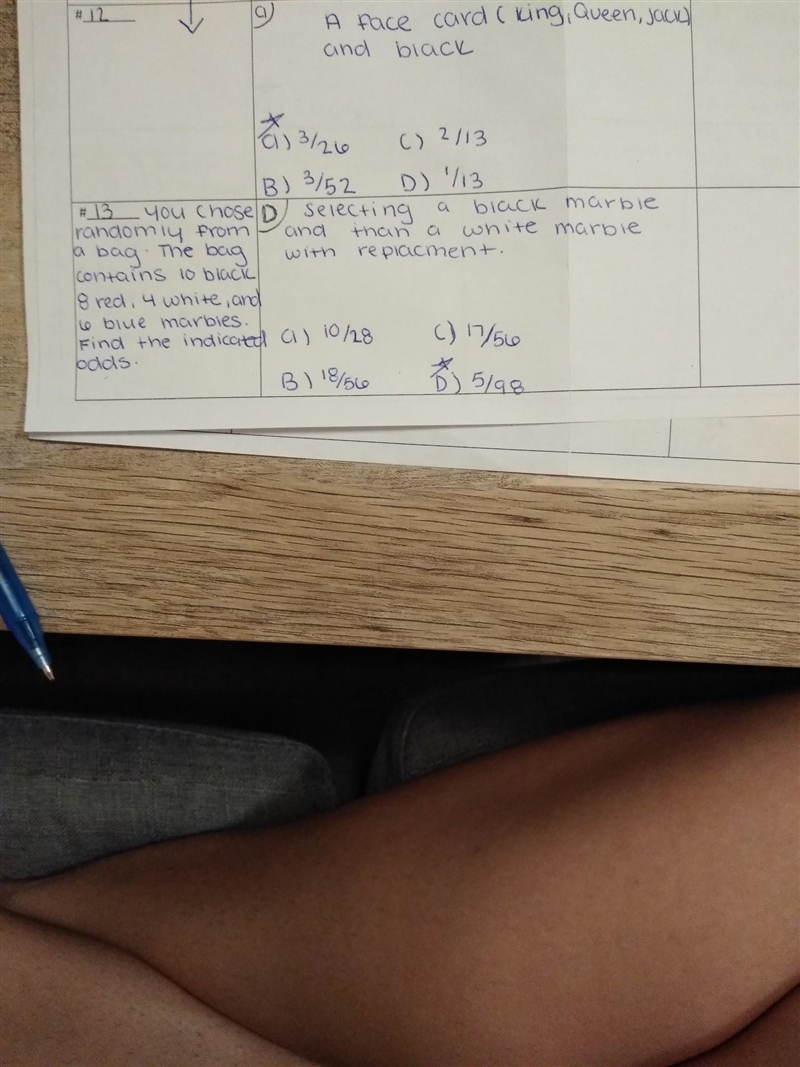 #12
a) A face card (King, Queen, Jack)
and black
a) 3/26 C) 2/13
B) 3/52 D) 1/13
#13 You chose
randomly from
a bag. The bag
contains 10 black
8 red, 4 white, and
6 blue marbles.
Find the indicated
odds.
D) Selecting a black marble
and than a white marble
with replacment.
a) 10/28 C) 17/56
B) 18/56 D) 5/98